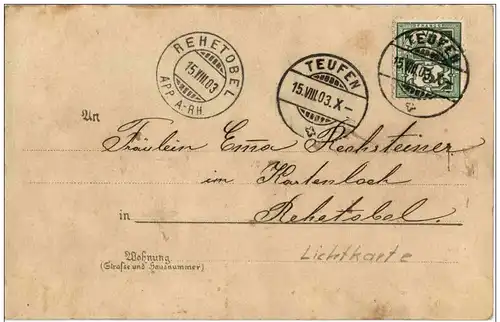 REHETOBEL
15.VIII.03
APP. A.-RH.
TEUFEN
15.VIII.03.X–
TEUFEN
15.VIII.03.X–
FRANCO
An
Fräulein Emma Rechsteiner
im Kastenloch
in Rehetobel.
Wohnung
(Straße und Hausnummer)
Lichtkarte